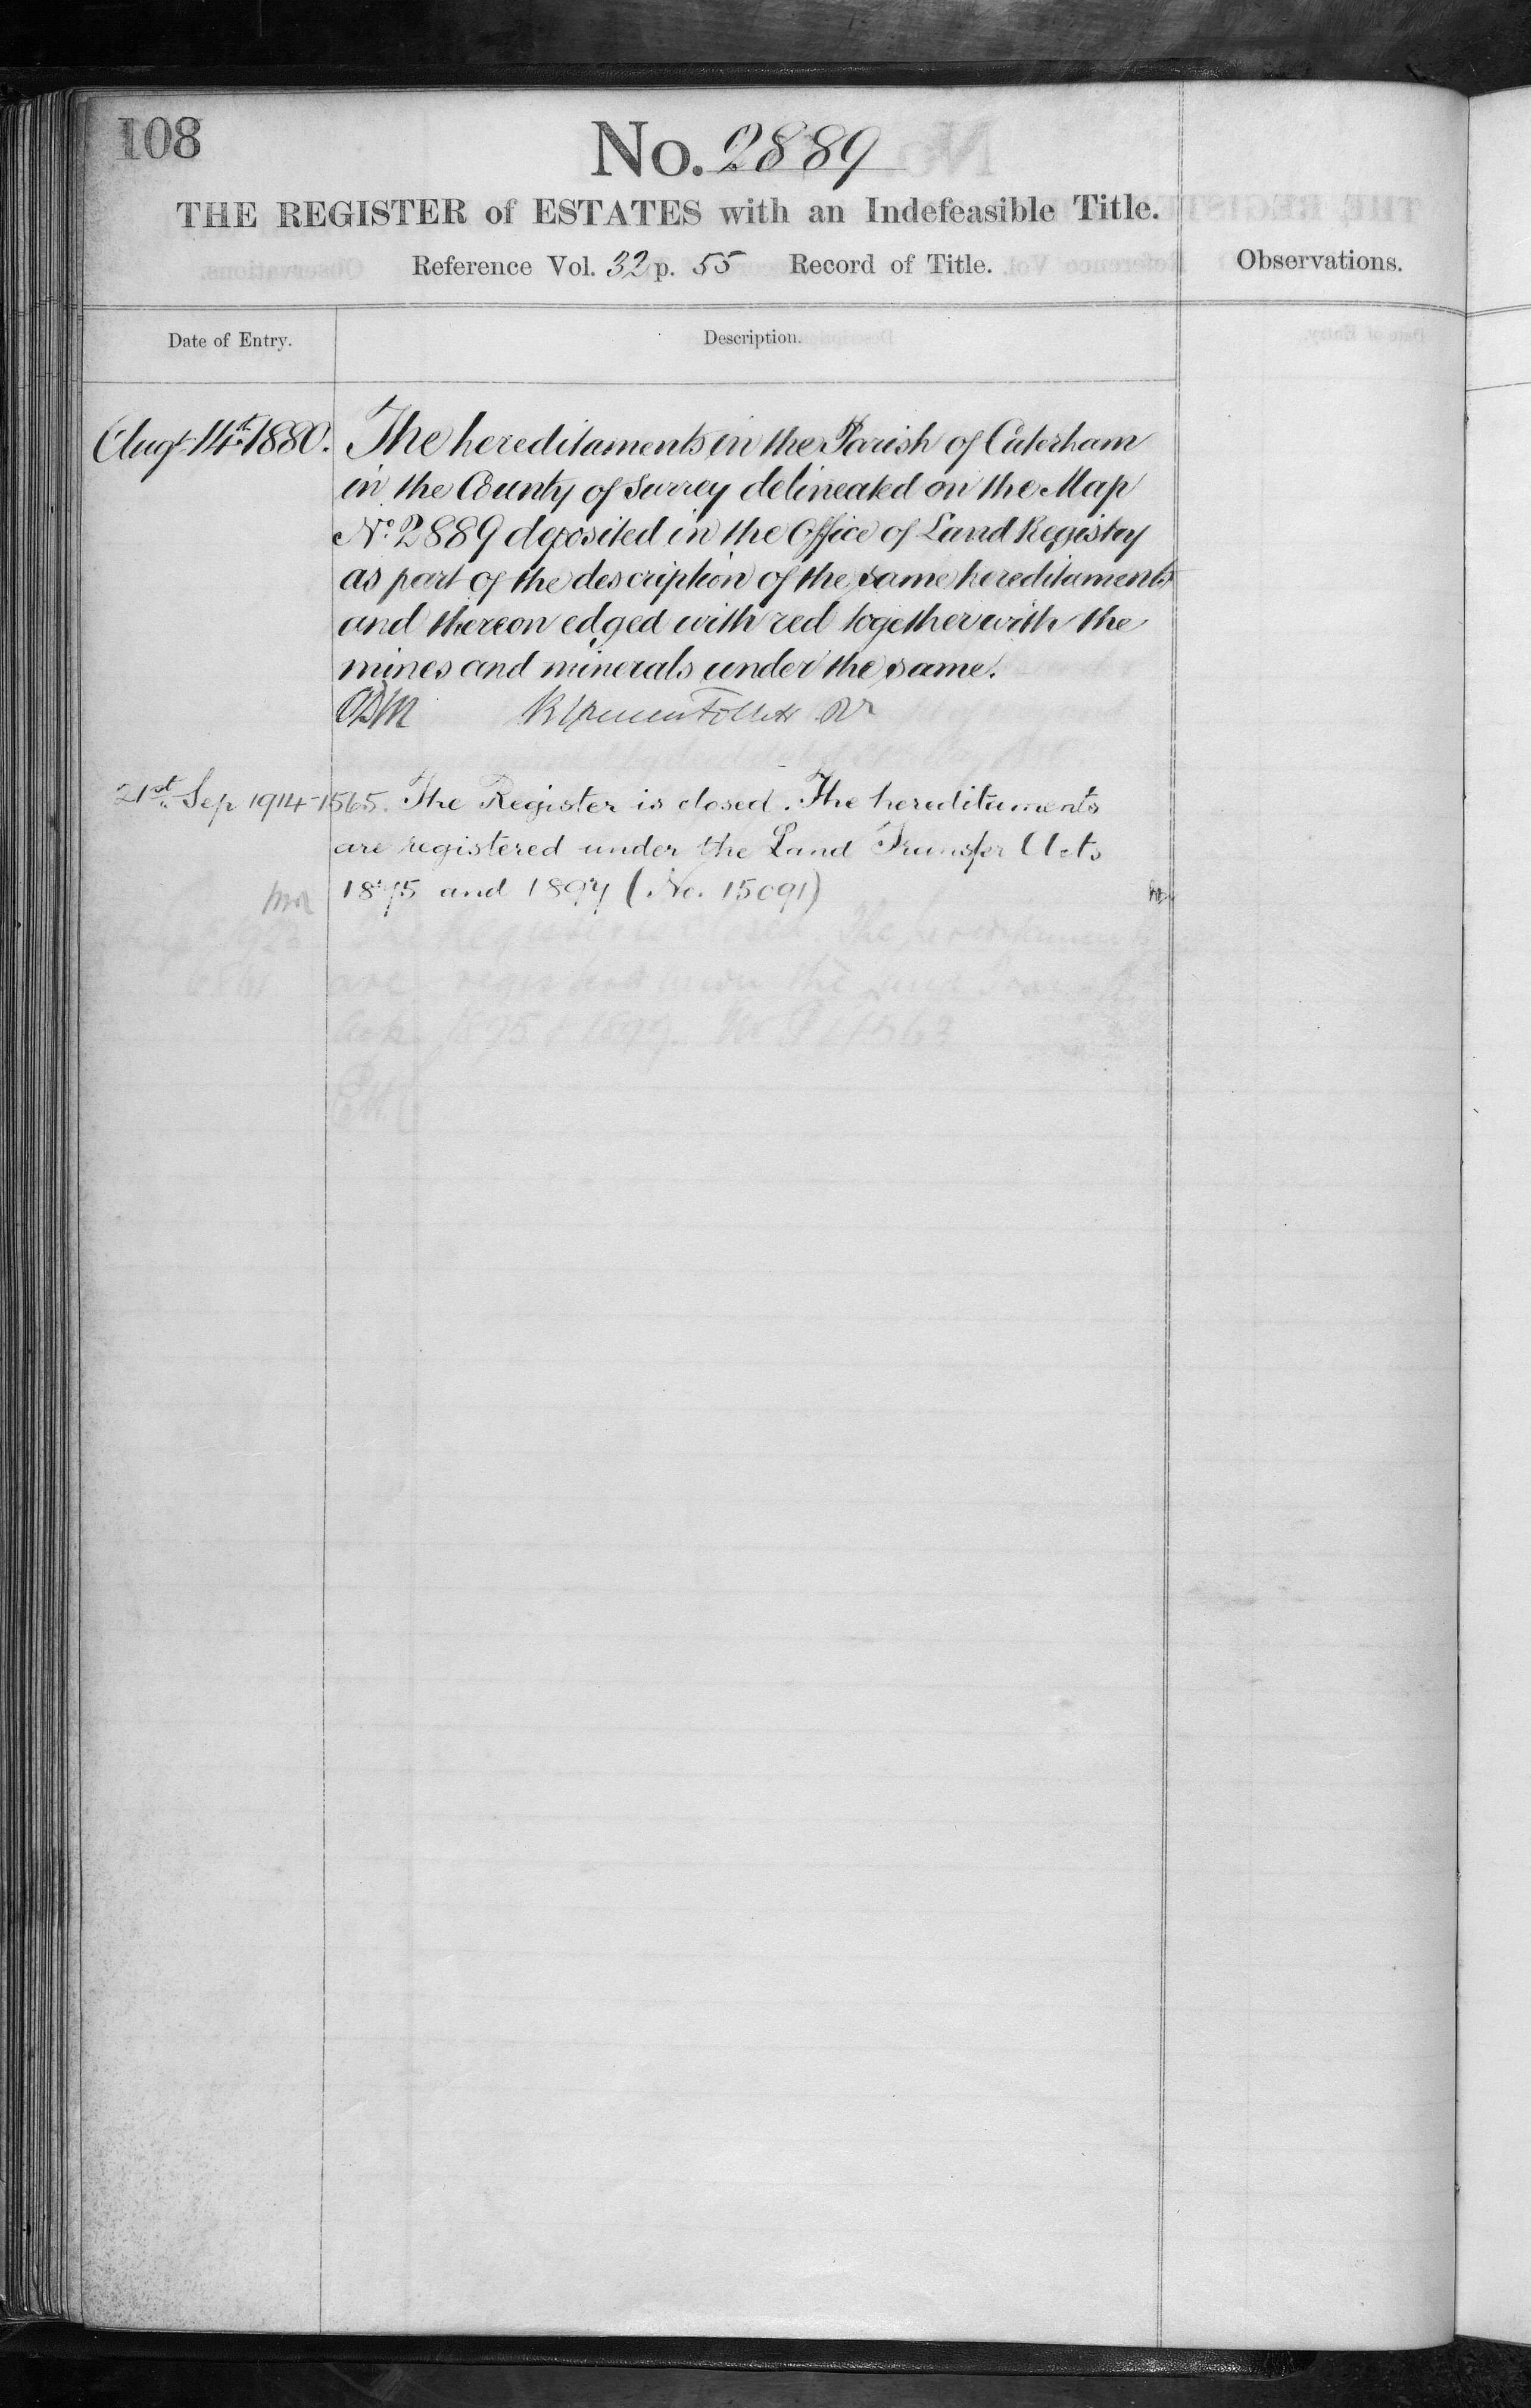 108
No. 2889
THE REGISTER of ESTATES with an Indefeasible Title.
Reference Vol. 32 p. 55 Record of Title.
Observations.
Date of Entry.
Description.
Augt. 14th. 1880. The hereditaments in the Parish of Caterham
in the County of Surrey delineated on the Map
No. 2889 deposited in the Office of Land Registry
as part of the description of the same hereditaments
and thereon edged with red together with the
mines and minerals under the same.
21st. Sep 1914-1565. The Register is closed. The hereditaments
are registered under the Land Transfer Acts
1875 and 1897 (No. 15091)